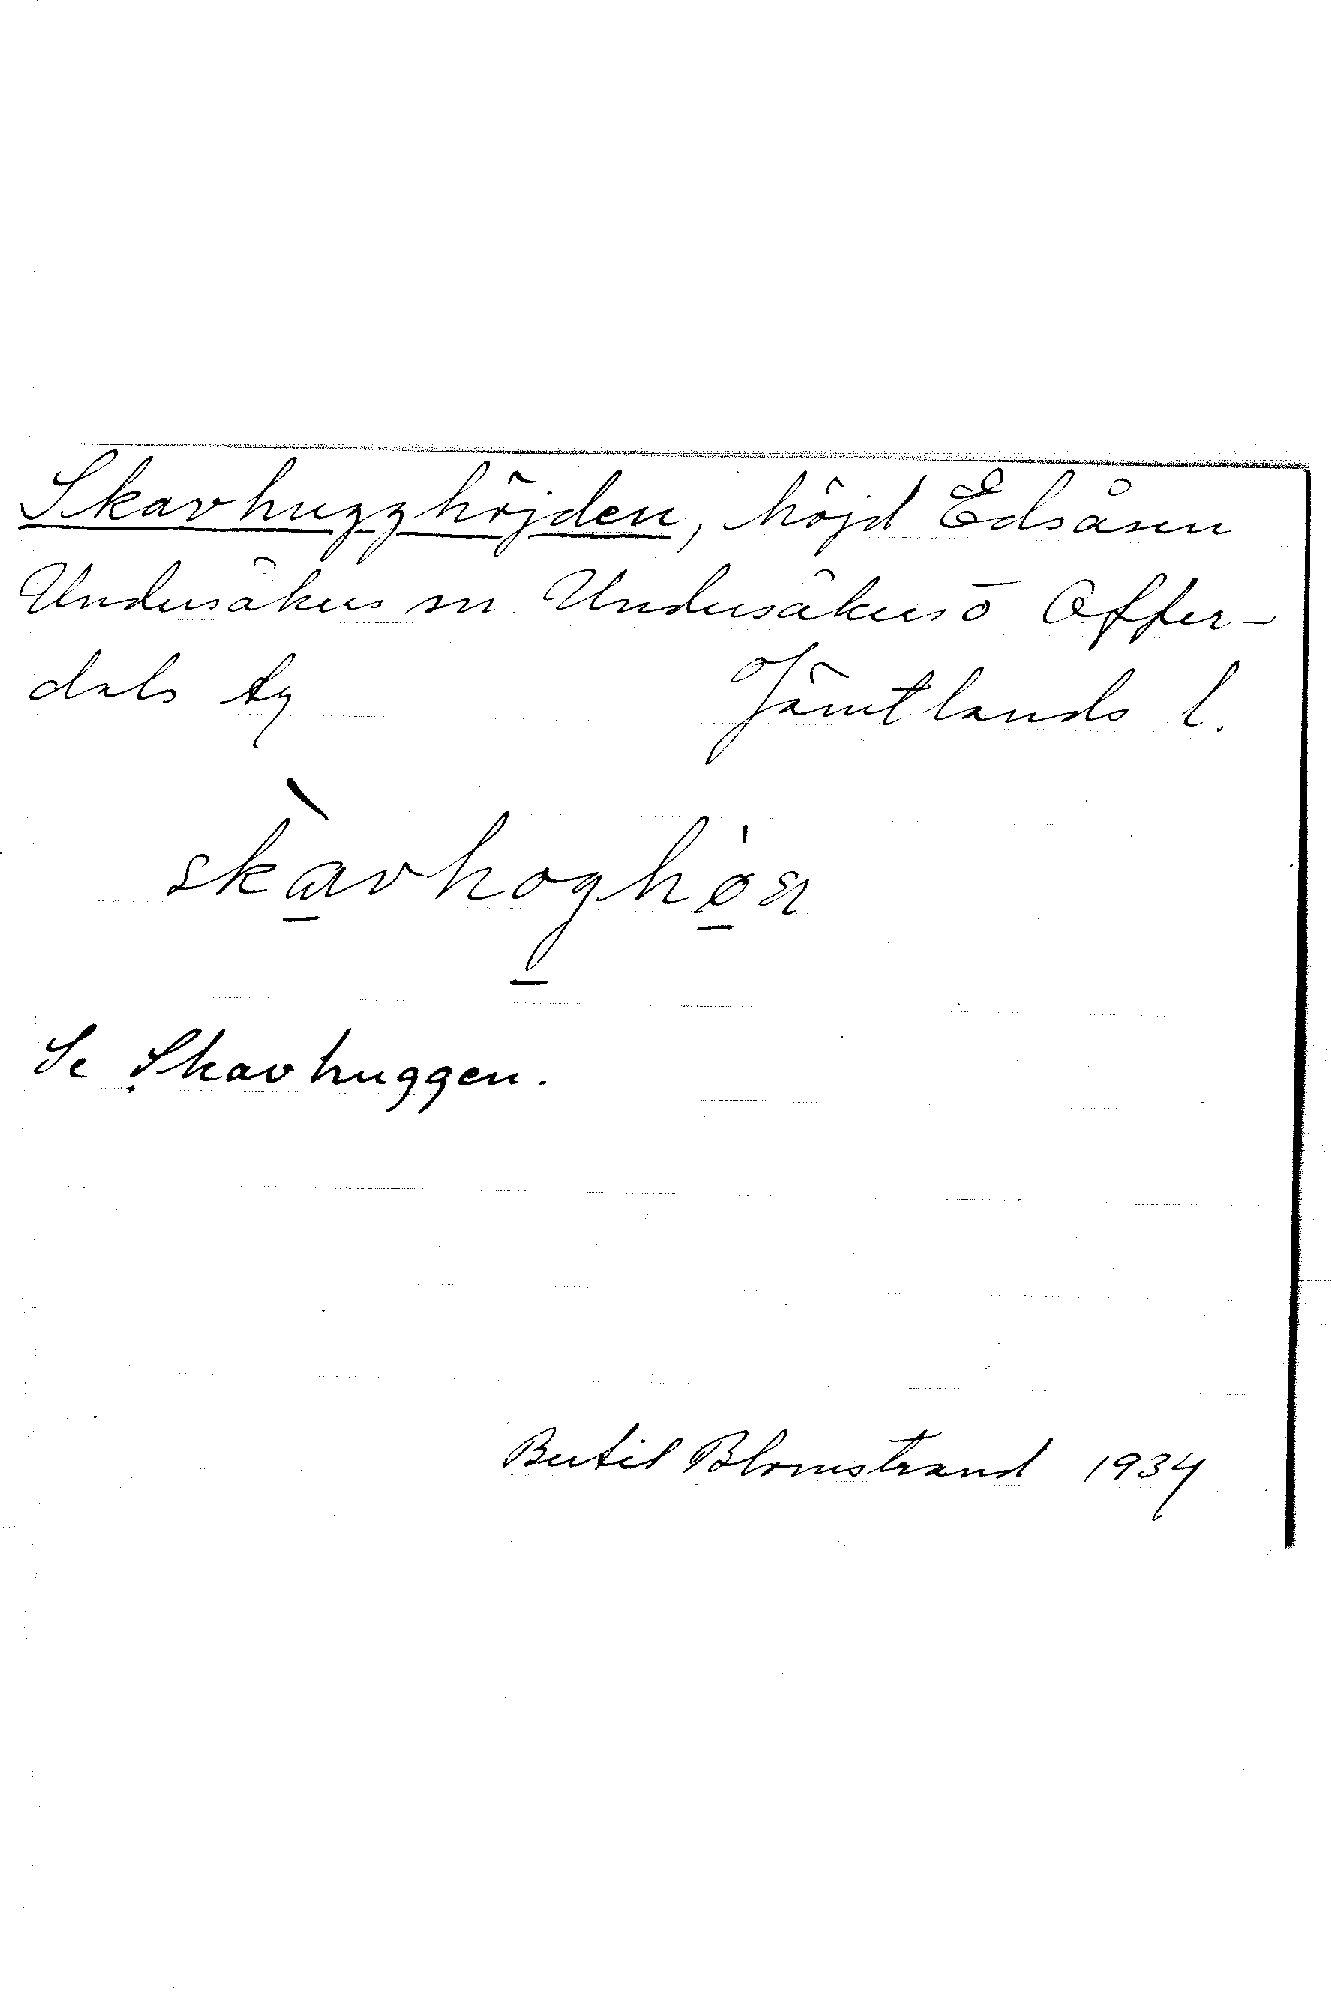 Skavhugghöjden, höjd Edsåsen
Undersåkers sn Undersåkers o Offer-
dals tg Jämtlands l.
skàvhoghø̀n
Se Skavhuggen.
Bertil Blomstrand 1934